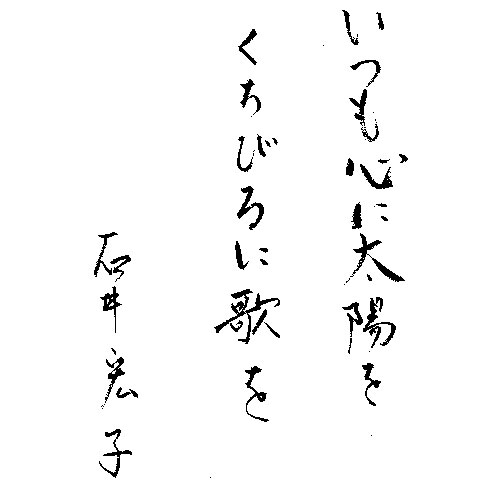 いつも心に太陽を
くちびるに歌を
石井宏子